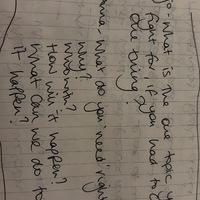 go - What is the one topic y
fight for, if you had to
one thing?
ma - What do you need righ
Why?
Who with?
How will it happen?
What can we do to
it happen?